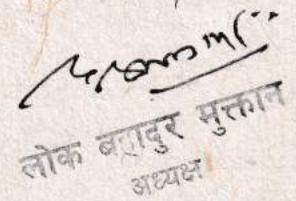 लोक बहादुर मुक्तान
अध्यक्ष